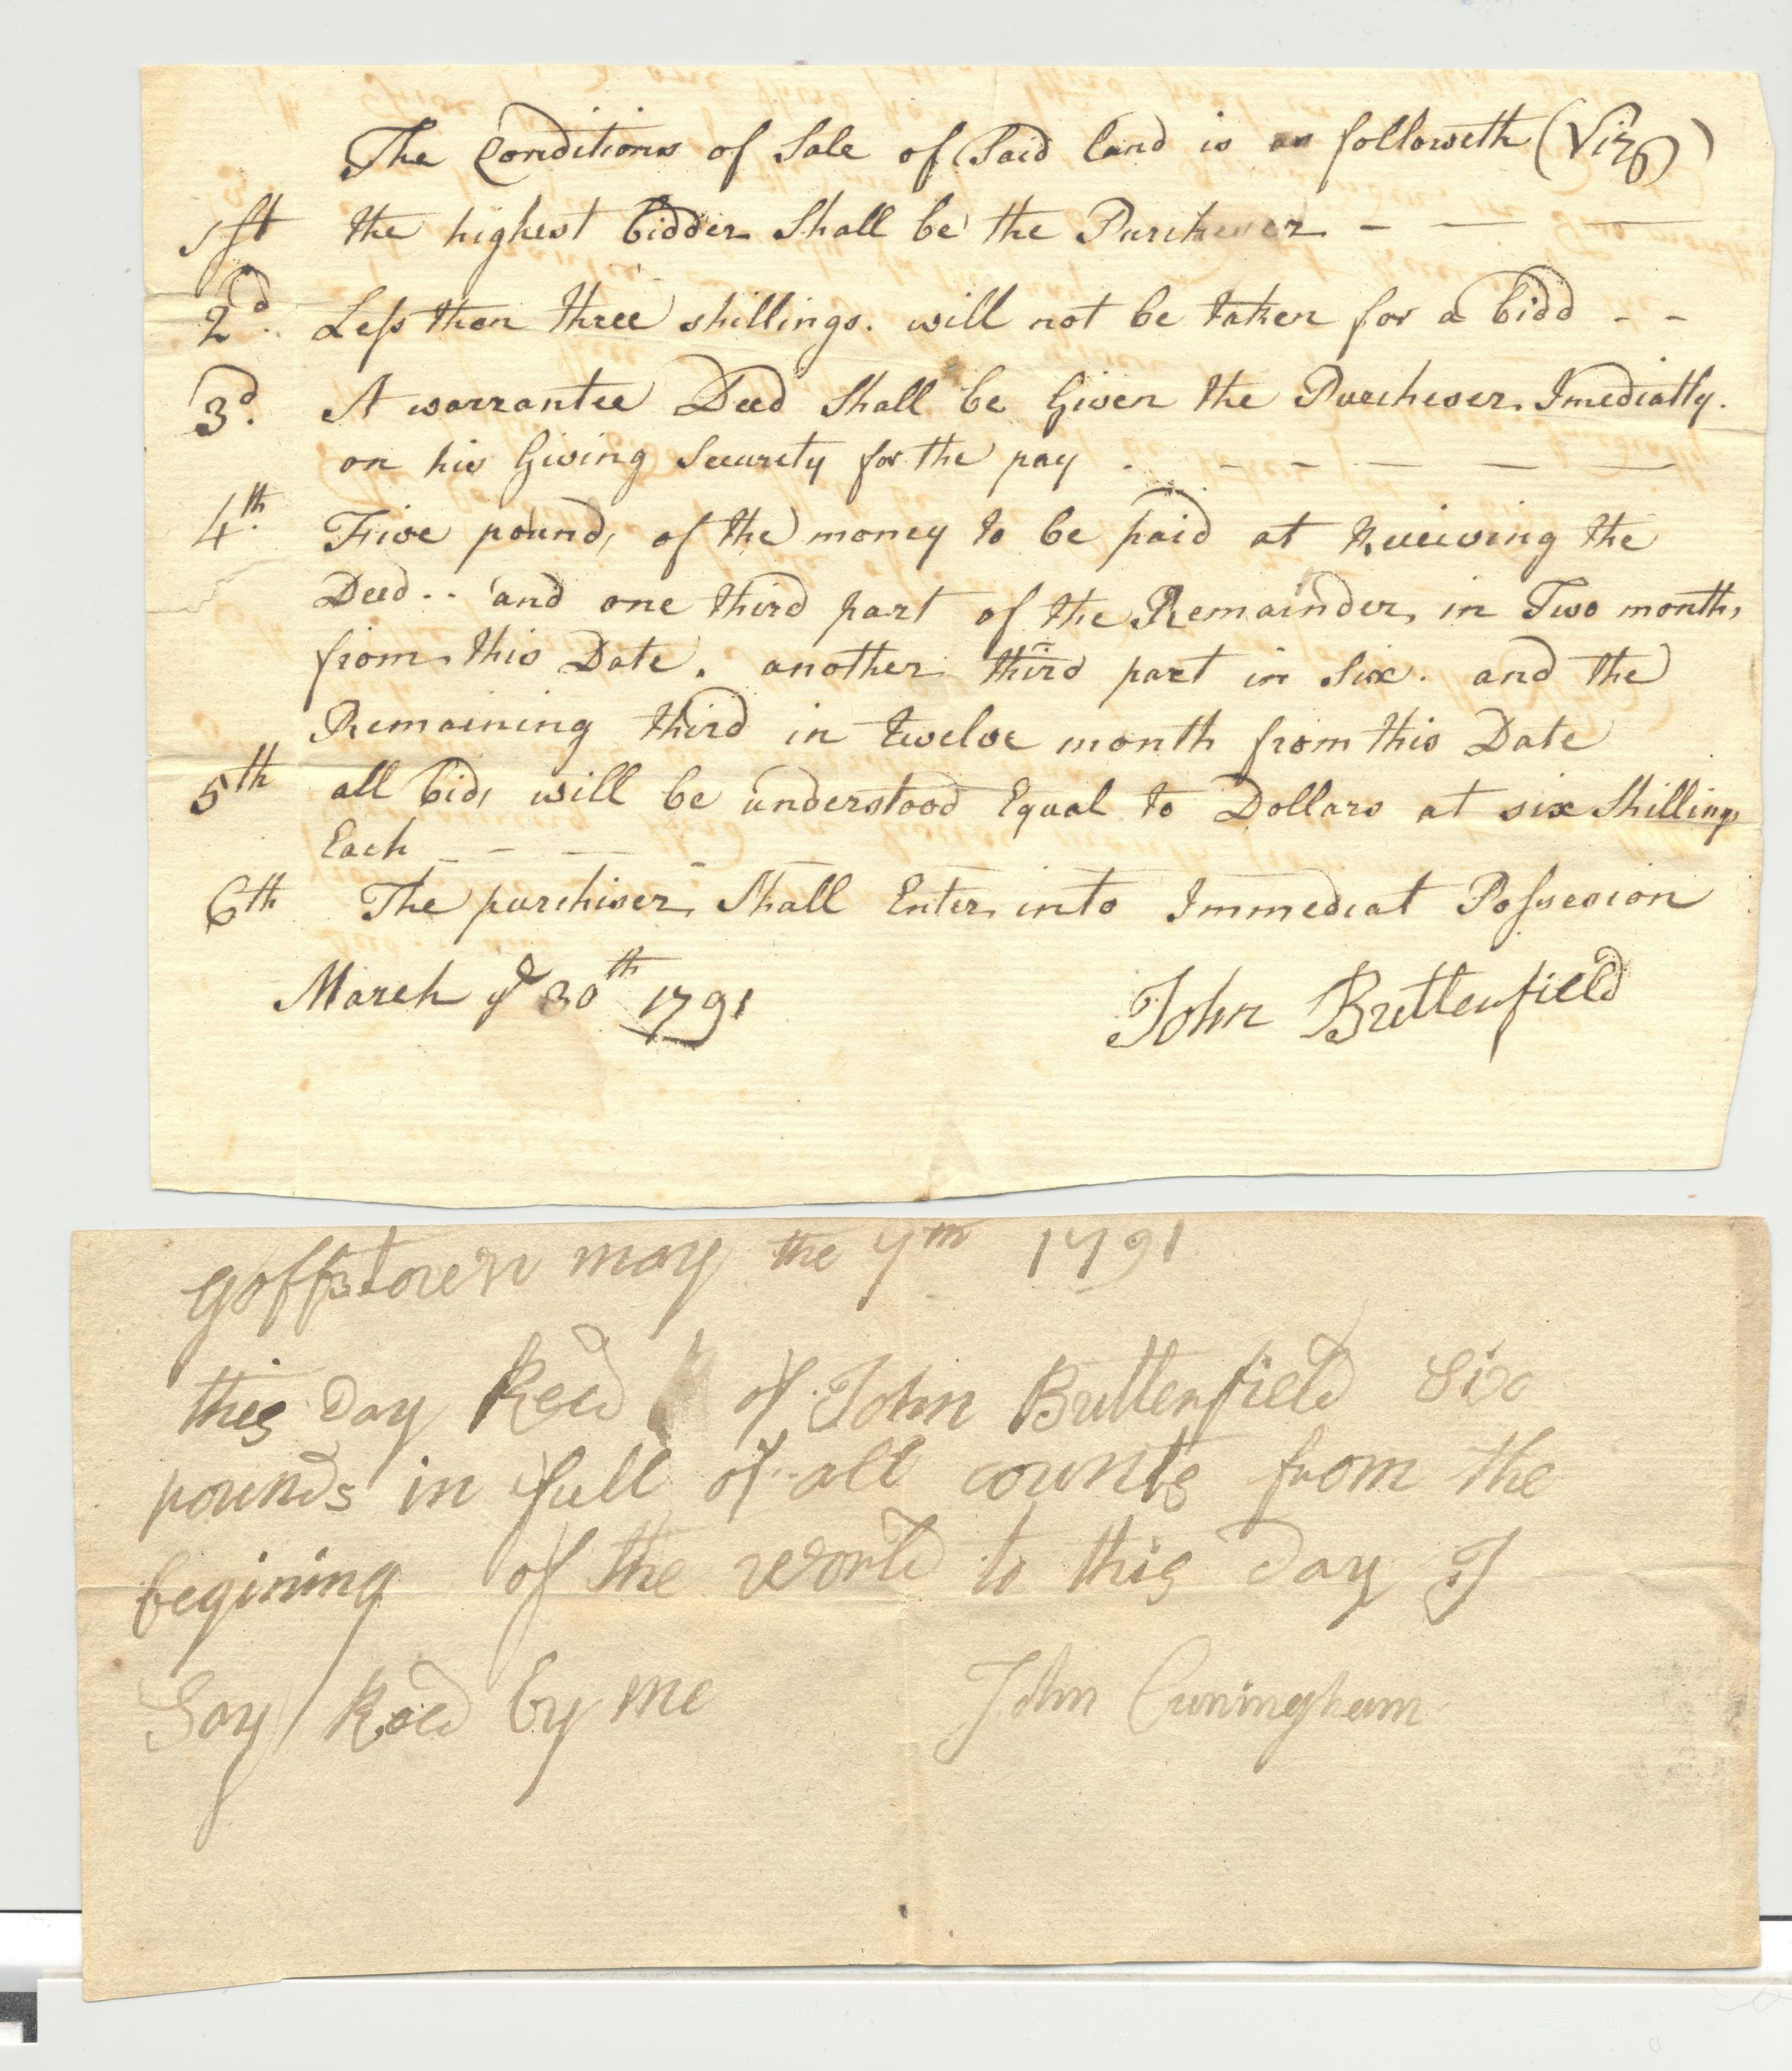 The Conditions of Sale of Said land is as followeth (Viz)
1st the highest bidder Shall be the Purcheser - - -
2d. Less then three shillings. will not be taken for a bidd - -
3d. A warrantee Deed Shall be Given the Purcheser Imediatly.
on his Giving Security for the pay . - - - - -
4th. Five pounds of the money to be paid at Receiving the
Deed.. and one third part of the Remainder in Two months
from this Date. another third part in six. and the
Remaining third in twelve month from this Date
5th all bids will be understood Equal to Dollars at six Shillings
Each - - - -
6th The purchiser Shall Enter into Immediat Possesion
March ye 30th 1791 John Butterfield
goffstown may the 7th 1791
this Day Recd of John Butterfield Six
pounds in full of all counts from the
begining of the world to this Day I
Say Recd by me John Cuningham